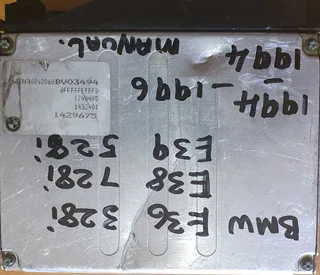 BV03494
1432401
1429675
BMW E36 328i
E38 728i
E39 528i
1994 - 1996
- 1994 MANUAL.